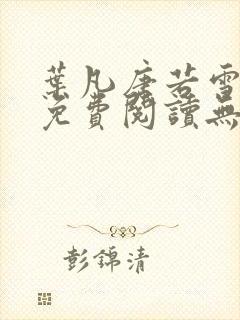 葉凡唐若雪
免費閱讀無
彭錦清